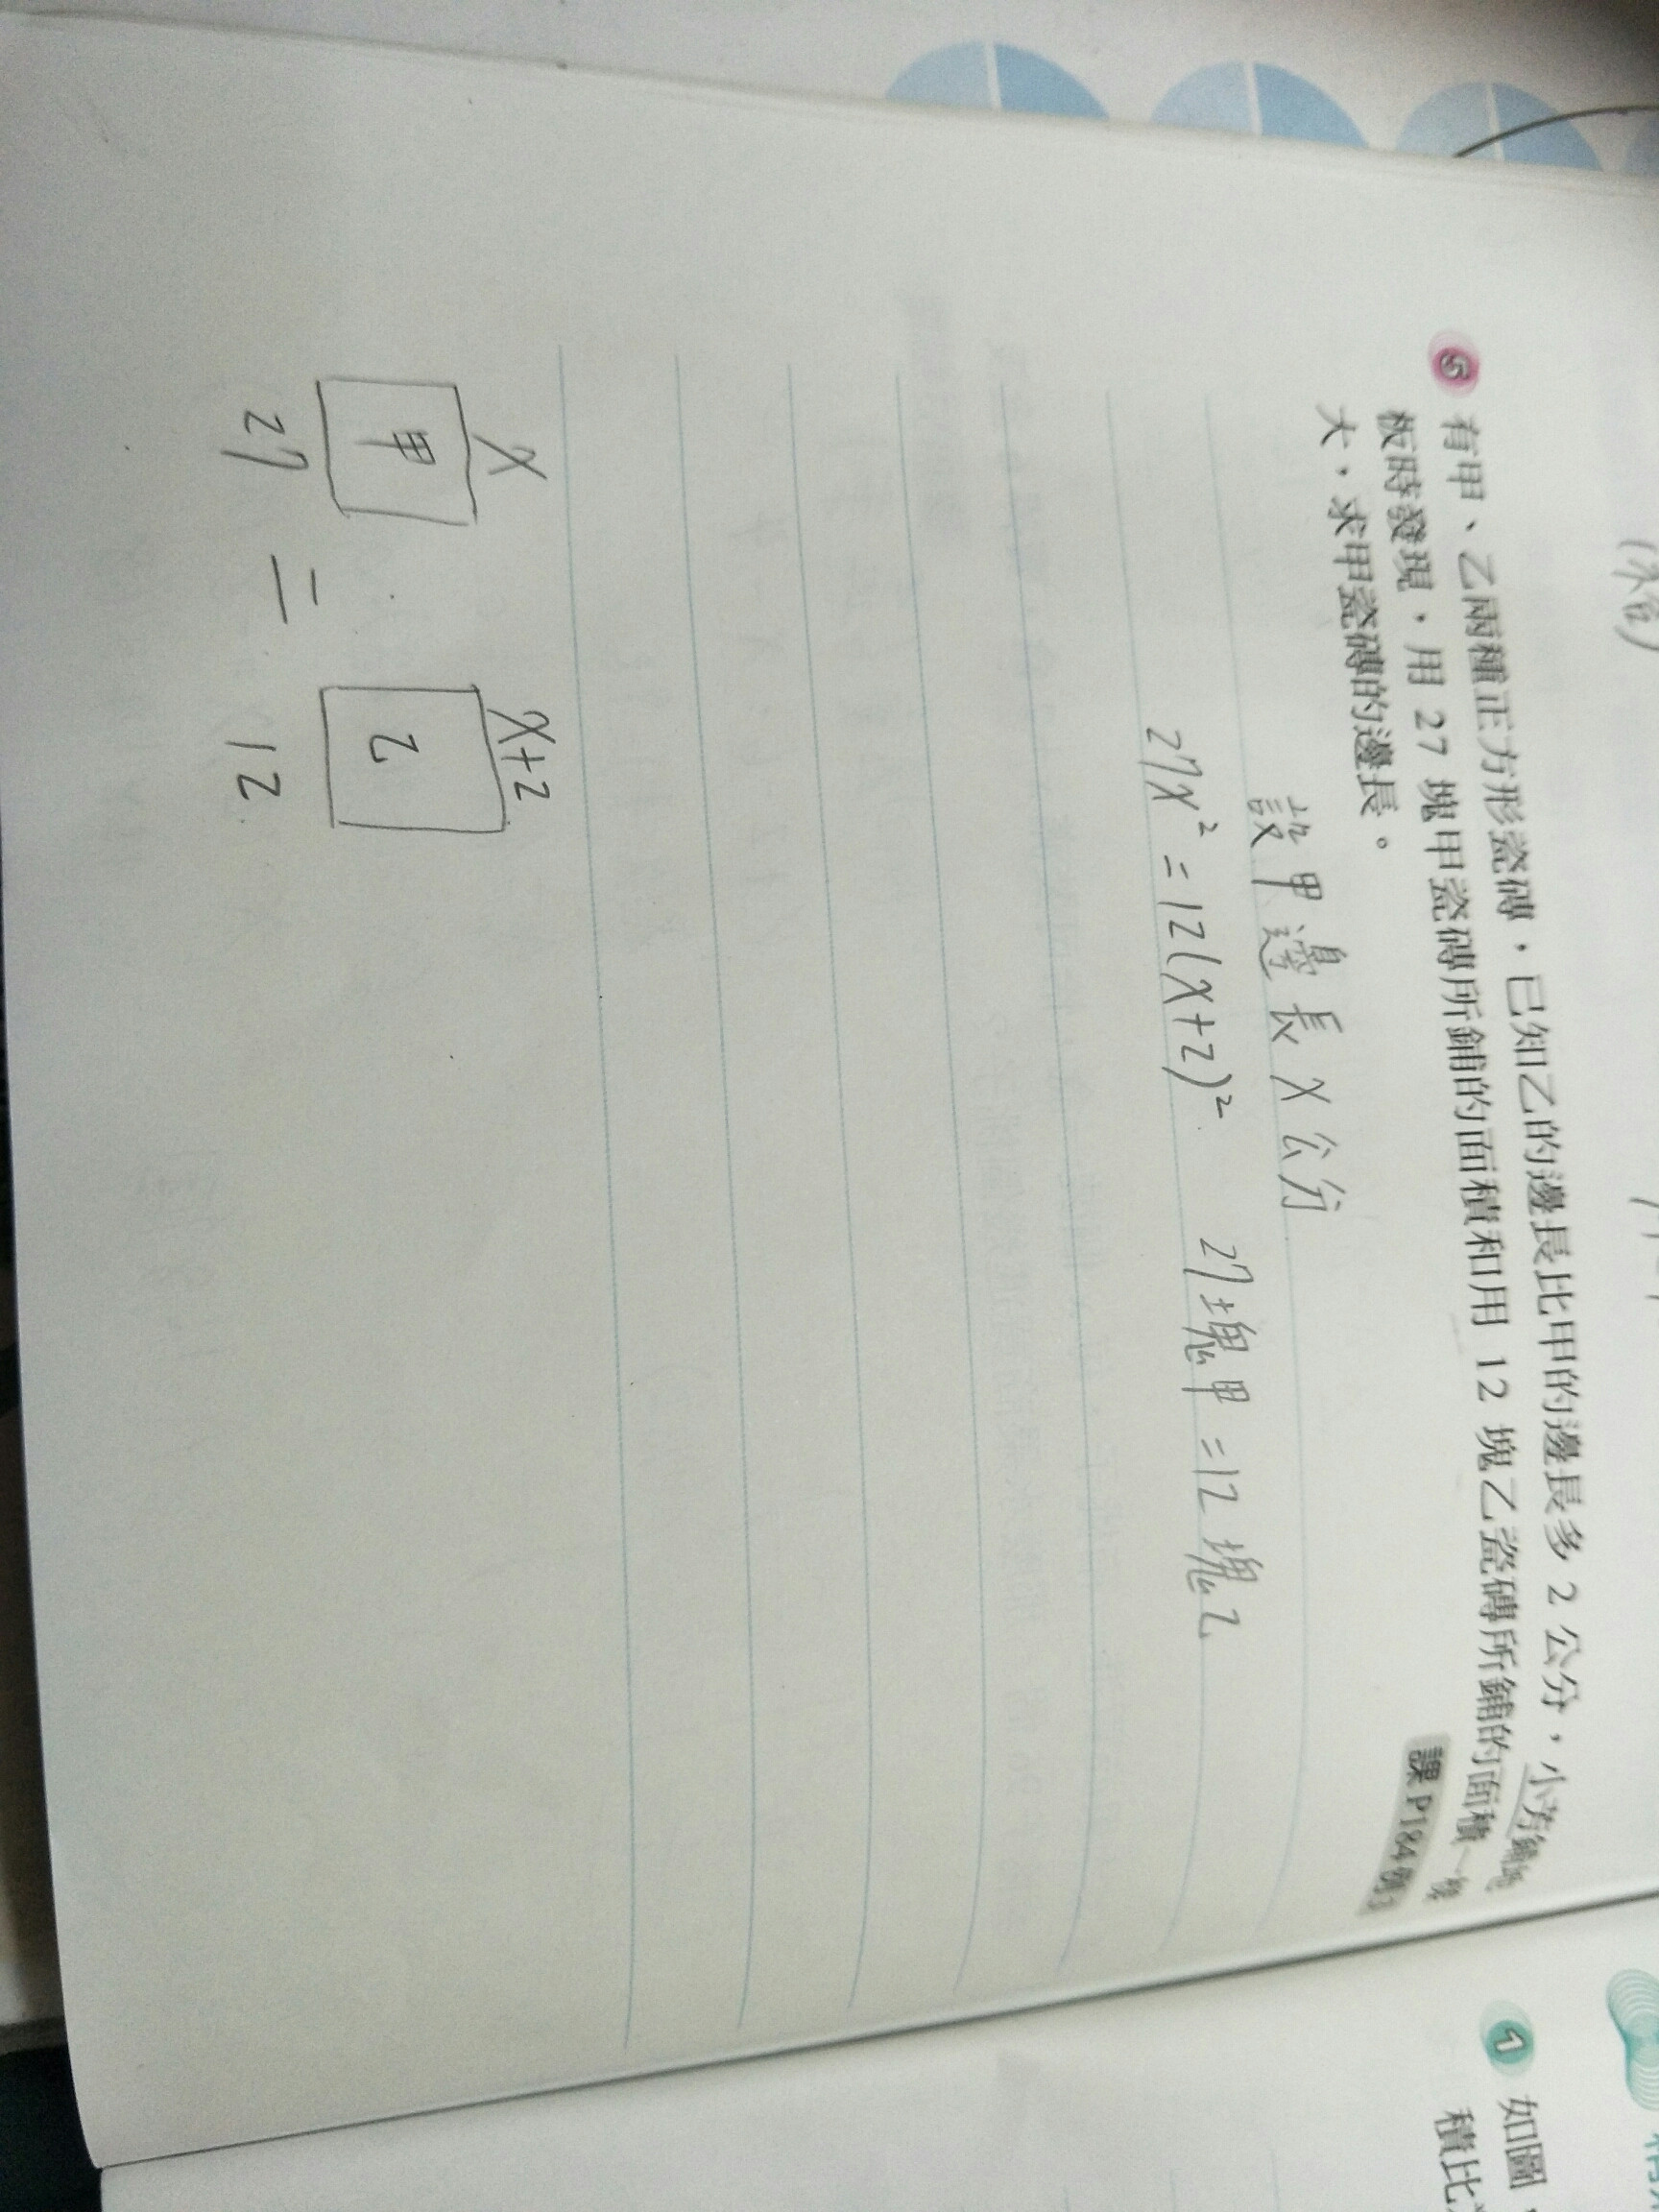 5 有甲、乙兩種正方形瓷磚,已知乙的邊長比甲的邊長多 2 公分,小芳鋪地
板時發現,用 27 塊甲瓷磚所鋪的面積和用 12 塊乙瓷磚所鋪的面積一樣
大,求甲瓷磚的邊長。
課 P184 例3
設甲邊長 x 公分
27x² = 12(x+2)² 27塊甲 = 12塊乙
x x+2
甲 乙
27 = 12
1 如圖,
積比